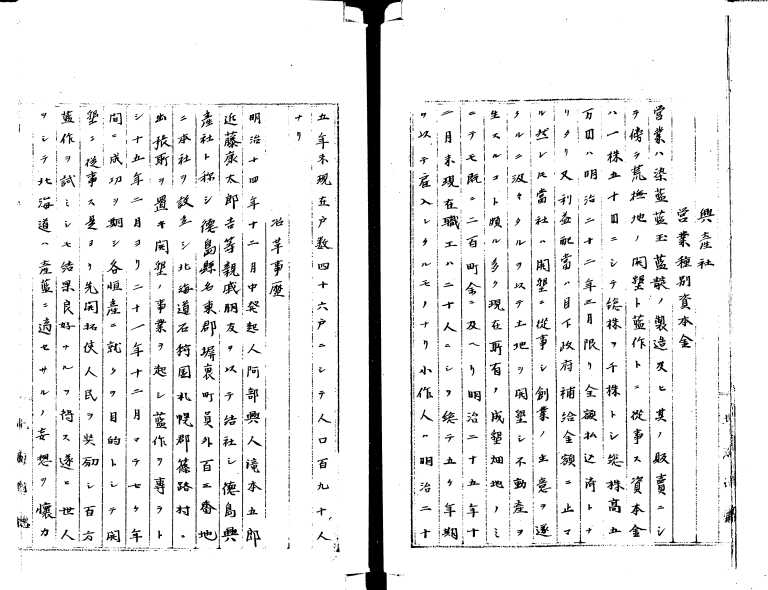 興産社
営業種別資本金
営業ハ染藍藍玉藍靛ノ製造及ヒ其ノ販賣ニシ
テ傍ラ荒撫地ノ開墾ト藍作トニ從事ス資本金
ハ一株五十円ニシテ総株ヲ千株トシ総株高五
万円ハ明治二十二年三月限リ全額払込済トナ
リタリ又利益配當ハ目下政府補給金額ニ止マ
ル然レ𪜈當社ハ開墾ニ從事シ創業ノ主意ヲ遂
クルニ汲々タルヲ以テ土地ヲ開墾シ不動産ヲ
生スルコト頗ル多ク現在所有ノ成墾畑地ノミ
ニテモ既ニ二百町余ニ及ヘリ明治二十五年十
二月末現在職工ハ二十人ニシテ総テ五ケ年期
ヲ以テ雇入レタルモノナリ小作人ハ明治二十
五年末現五戸数四十六戸ニシテ人口百九十人
ナリ
沿革事歴
明治十四年十二月中発起人阿部興人滝本五郎
近藤康太郎吉等親戚朋友ヲ以テ結社シ徳島興
産社ト称シ徳島縣名東郡堀裏町員外百三番地
ニ本社ヲ設立シ北海道石狩国札幌郡篠路村ニ
出張所ヲ置キ開墾ノ事業ヲ起シ藍作ヲ專ラト
シ十五年二月ヨリ二十一年十二月マテ七ケ年
間ニ成功ヲ期シ各恒産ニ就クヲ目的トシテ開
墾ニ從事ス是ヨリ先開拓使人民ヲ奨励シ百方
藍作ヲ試ミシモ結果良好ナルヲ得ス遂ニ世人
ヲシテ北海道ハ産藍ニ適セサルノ妄想ヲ懐カ